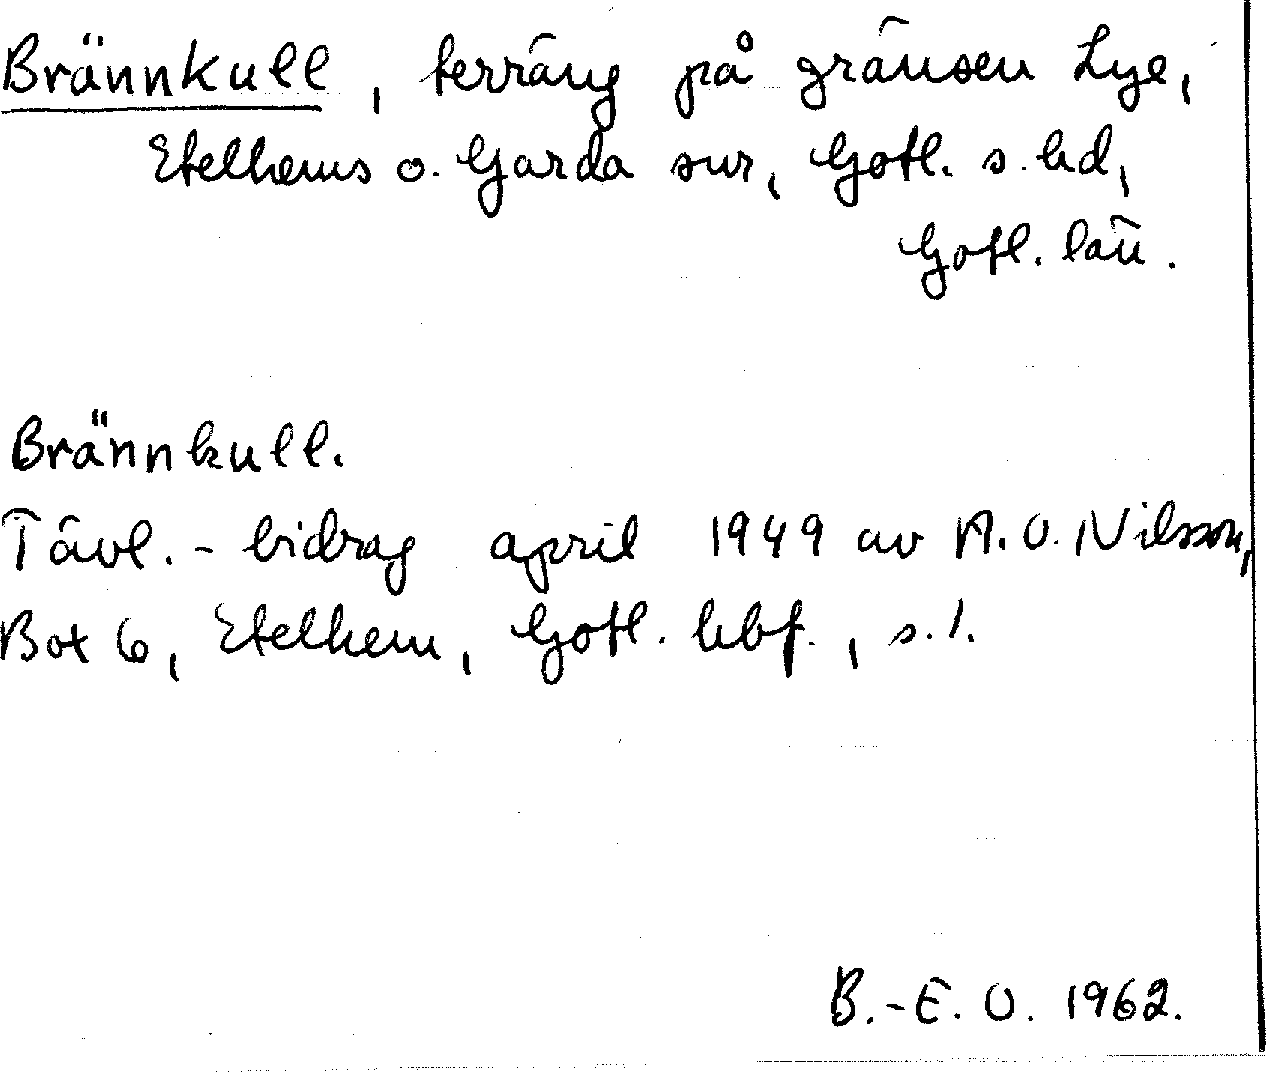 Brännkull, terräng på gränsen Lye,
Etelhems o. Garda snr, Gotl. s. hd,
Gotl. län.
Brännkull.
Tävl.-bidrag april 1949 av A. O. Nilsson,
Box 6, Etelhem, Gotl. hbf., s. 1.
B.-E. O. 1962.